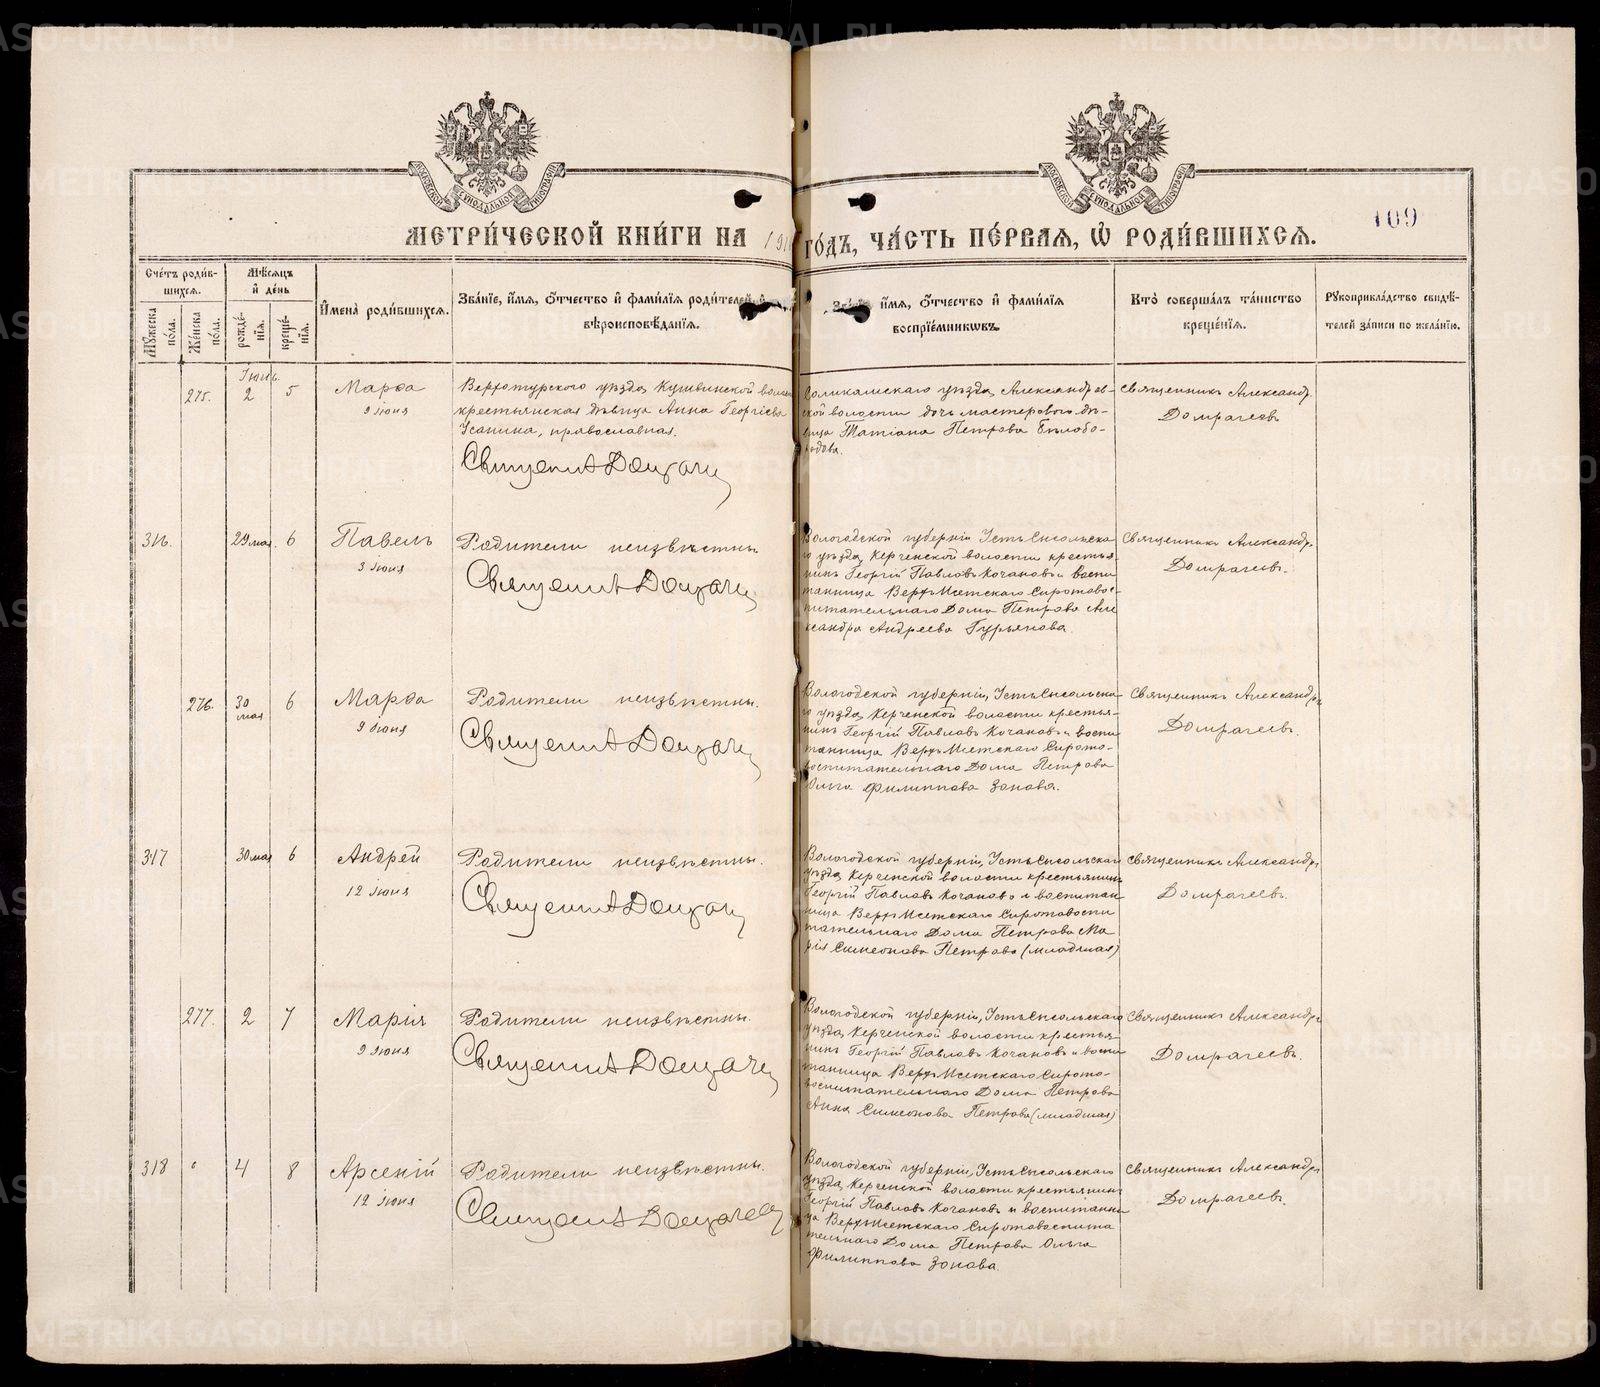 109
МЕТРИ́ЧЕСКОЙ КНИ́ГИ НА 191 ГО́ДЪ, ЧА́СТЬ ПЕ́РВАѦ, Ѽ РОДИ́ВШИХСѦ.
Сче́тъ роди́вшихсѧ.
Мꙋ́жеска по́ла.
Же́нска по́ла.
Мѣ́сѧцъ и҆ де́нь
рожде́нїѧ.
креще́нїѧ.
И҆мена̀ роди́вшихсѧ.
Зва́нїе, и҆́мѧ, ѻ҆́тчество и҆ фами́лїѧ роди́телей, и҆
вѣроисповѣ́данїѧ.
Зва́нїе, и҆́мѧ, ѻ҆́тчество и҆ фами́лїѧ
воспрїе́мникѡвъ.
Кто̀ соверша́лъ та́инство
креще́нїѧ.
Рꙋкоприкла́дство свидѣ́-
телей за́писи по жела́нїю.
275.
Іюнь
2
5
Марѳа
9 іюня
Верхотурскаго уѣзда Кушвинской волости
крестьянская дѣвица Анна Георгіева
Усанина, православная.
Священникъ Домрачеев
Соликамскаго уѣзда, Александров-
ской волости дочь мастерового дѣ-
вица Татіана Петрова Бѣлобо-
родова.
Священникъ Александръ
Домрачеевъ
316.
29 мая
6
Павелъ
3 іюня
Родители неизвѣстны
Священникъ Домрачеев
Вологодской губерніи Устьсысольска-
го уѣзда, Керченской волости крестья-
нинъ Георгій Павловъ Кочановъ и воспи
танница Верхъ-Исетскаго Сиротовос-
питательнаго Дома Петрова Але
ксандра Андреева Гурьянова.
Священникъ Александръ
Домрачеевъ.
276.
30
мая
6
Марѳа
9 іюня
Родители неизвѣстны.
Священникъ Домрачеев
Вологодской губерніи, Устьсысольска-
го уѣзда, Керченской волости крестья-
нинъ Георгій Павловъ Кочановъ и воспи
танница Верхъ-Исетскаго Сирото-
воспитательнаго Дома Петрова
Ольга Филиппова Зонова.
Священникъ Александръ
Домрачеевъ.
317
30 мая
6
Андрей
12 іюня
Родители неизвѣстны.
Священникъ Домрачеев
Вологодской губерніи, Устьсысольскаго
уѣзда, Керченской волости крестьянинъ
Георгій Павловъ Кочановъ и воспитан
ница Верхъ-Исетскаго Сиротовоспи
тательнаго Дома Петрова Ма
рія Симеонова Петрова (младшая)
Священникъ Александръ
Домрачеевъ.
277.
2
7
Марія
9 іюня
Родители неизвѣстны.
Священникъ Домрачеев
Вологодской губерніи, Устьсысольскаго
уѣзда, Керченской волости крестья-
нинъ Георгій Павловъ Кочановъ и воспи
танница Верхъ-Исетскаго Сирото-
воспитательнаго Дома Петрова
Анна Симеонова Петрова (младшая)
Священникъ Александръ
Домрачеевъ.
318
4
8
Арсеній
12 іюня
Родители неизвѣстны.
Священникъ Домрачеев
Вологодской губерніи, Устьсысольскаго
уѣзда, Керченской волости крестьянинъ
Георгій Павловъ Кочановъ и воспитанни
ца Верхъ-Исетскаго Сиротовоспита
тельнаго Дома Петрова Ольга
Филиппова Зонова.
Священникъ Александръ
Домрачеевъ.
METRIKI.GASO-URAL.RU